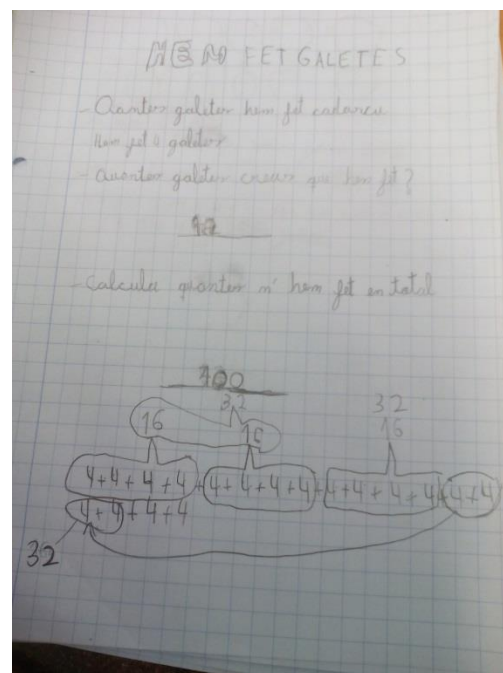 HEM FET GALETES
- Quantes galetes hem fet cadascu
Hem fet galetes
- Quantes galetes creus que hem fet?
- Calcula quantes n' hem fet en total
100
32 32
16 16 16
4+4+4+4+4+4+4+4+4+4+4+4+4+4
4+4+4+4
32